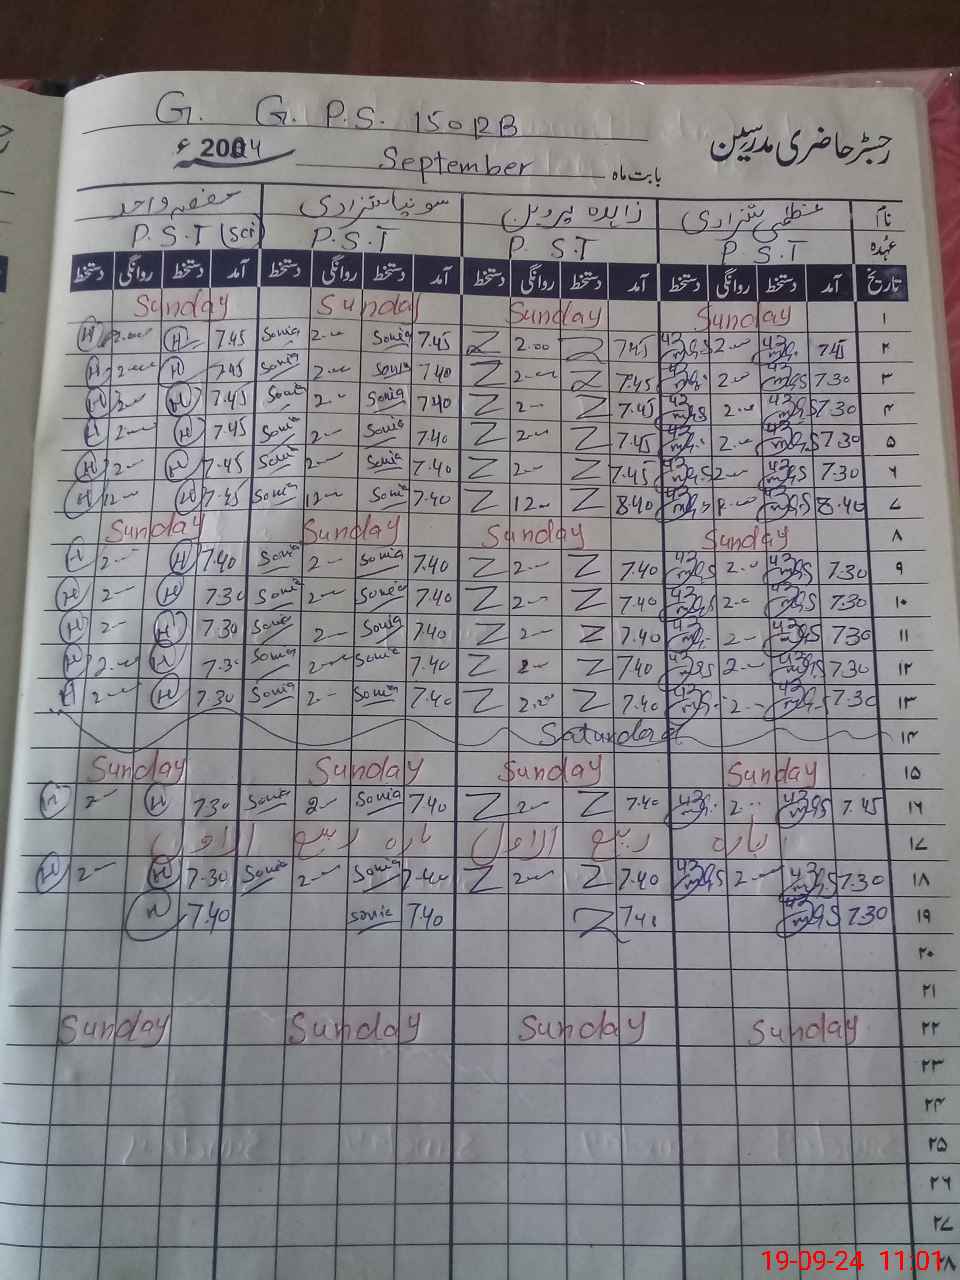 G. G. P.S. 150 RB
رجسٹر حاضری مدرسین
بابت ماہ September 2024ء
نام عظمیٰ شہزادی زاہدہ پروین سونیا شہزادی واحد
عہدہ P.S.T P.S.T P.S.T P.S.T (Sci)
تاریخ آمد دستخط روانگی دستخط آمد دستخط روانگی دستخط آمد دستخط روانگی دستخط آمد دستخط روانگی دستخط
۱ Sunday Sunday Sunday Sunday
۲ 7.45 2.00 7.45 Z 2.00 Z 7.45 Sonia 2.00 Sonia 7.45 H 2.00 H
۳ 7.30 2.00 7.45 Z 2.00 Z 7.40 Sonia 2.00 Sonia 7.45 H 2.00 H
۴ 7.30 2.00 7.45 Z 2.00 Z 7.40 Sonia 2.00 Sonia 7.45 H 2.00 H
۵ 7.30 2.00 7.45 Z 2.00 Z 7.40 Sonia 2.00 Sonia 7.45 H 2.00 H
۶ 7.30 2.00 7.45 Z 2.00 Z 7.40 Sonia 2.00 Sonia 7.45 H 2.00 H
۷ 8.40 8.40 Z 12.00 Z 7.40 Sonia 12.00 Sonia 7.45 H 12.00 H
۸ Sunday Sunday Sunday Sunday
۹ 7.30 2.00 7.40 Z 2.00 Z 7.40 Sonia 2.00 Sonia 7.40 H 2.00 H
۱۰ 7.30 2.00 7.40 Z 2.00 Z 7.40 Sonia 2.00 Sonia 7.30 H 2.00 H
۱۱ 7.30 2.00 7.40 Z 2.00 Z 7.40 Sonia 2.00 Sonia 7.30 H 2.00 H
۱۲ 7.30 2.00 7.40 Z 2.00 Z 7.40 Sonia 2.00 Sonia 7.30 H 2.00 H
۱۳ 7.30 2.00 7.40 Z 2.00 Z 7.40 Sonia 2.00 Sonia 7.30 H 2.00 H
۱۴ Saturday
۱۵ Sunday Sunday Sunday Sunday
۱۶ 7.45 2.00 7.40 Z 2.00 Z 7.40 Sonia 2.00 Sonia 7.30 H 2.00 H
۱۷ بارہ ربیع الاول بارہ ربیع الاول
۱۸ 7.30 2.00 7.40 Z 2.00 Z 7.40 Sonia 2.00 Sonia 7.30 H 2.00 H
۱۹ 7.30 Z 7.40 Sonia 7.40 H
۲۰
۲۱
۲۲ Sunday Sunday Sunday Sunday
۲۳
۲۴
۲۵
۲۶
۲۷
۲۸
19-09-24 11:01